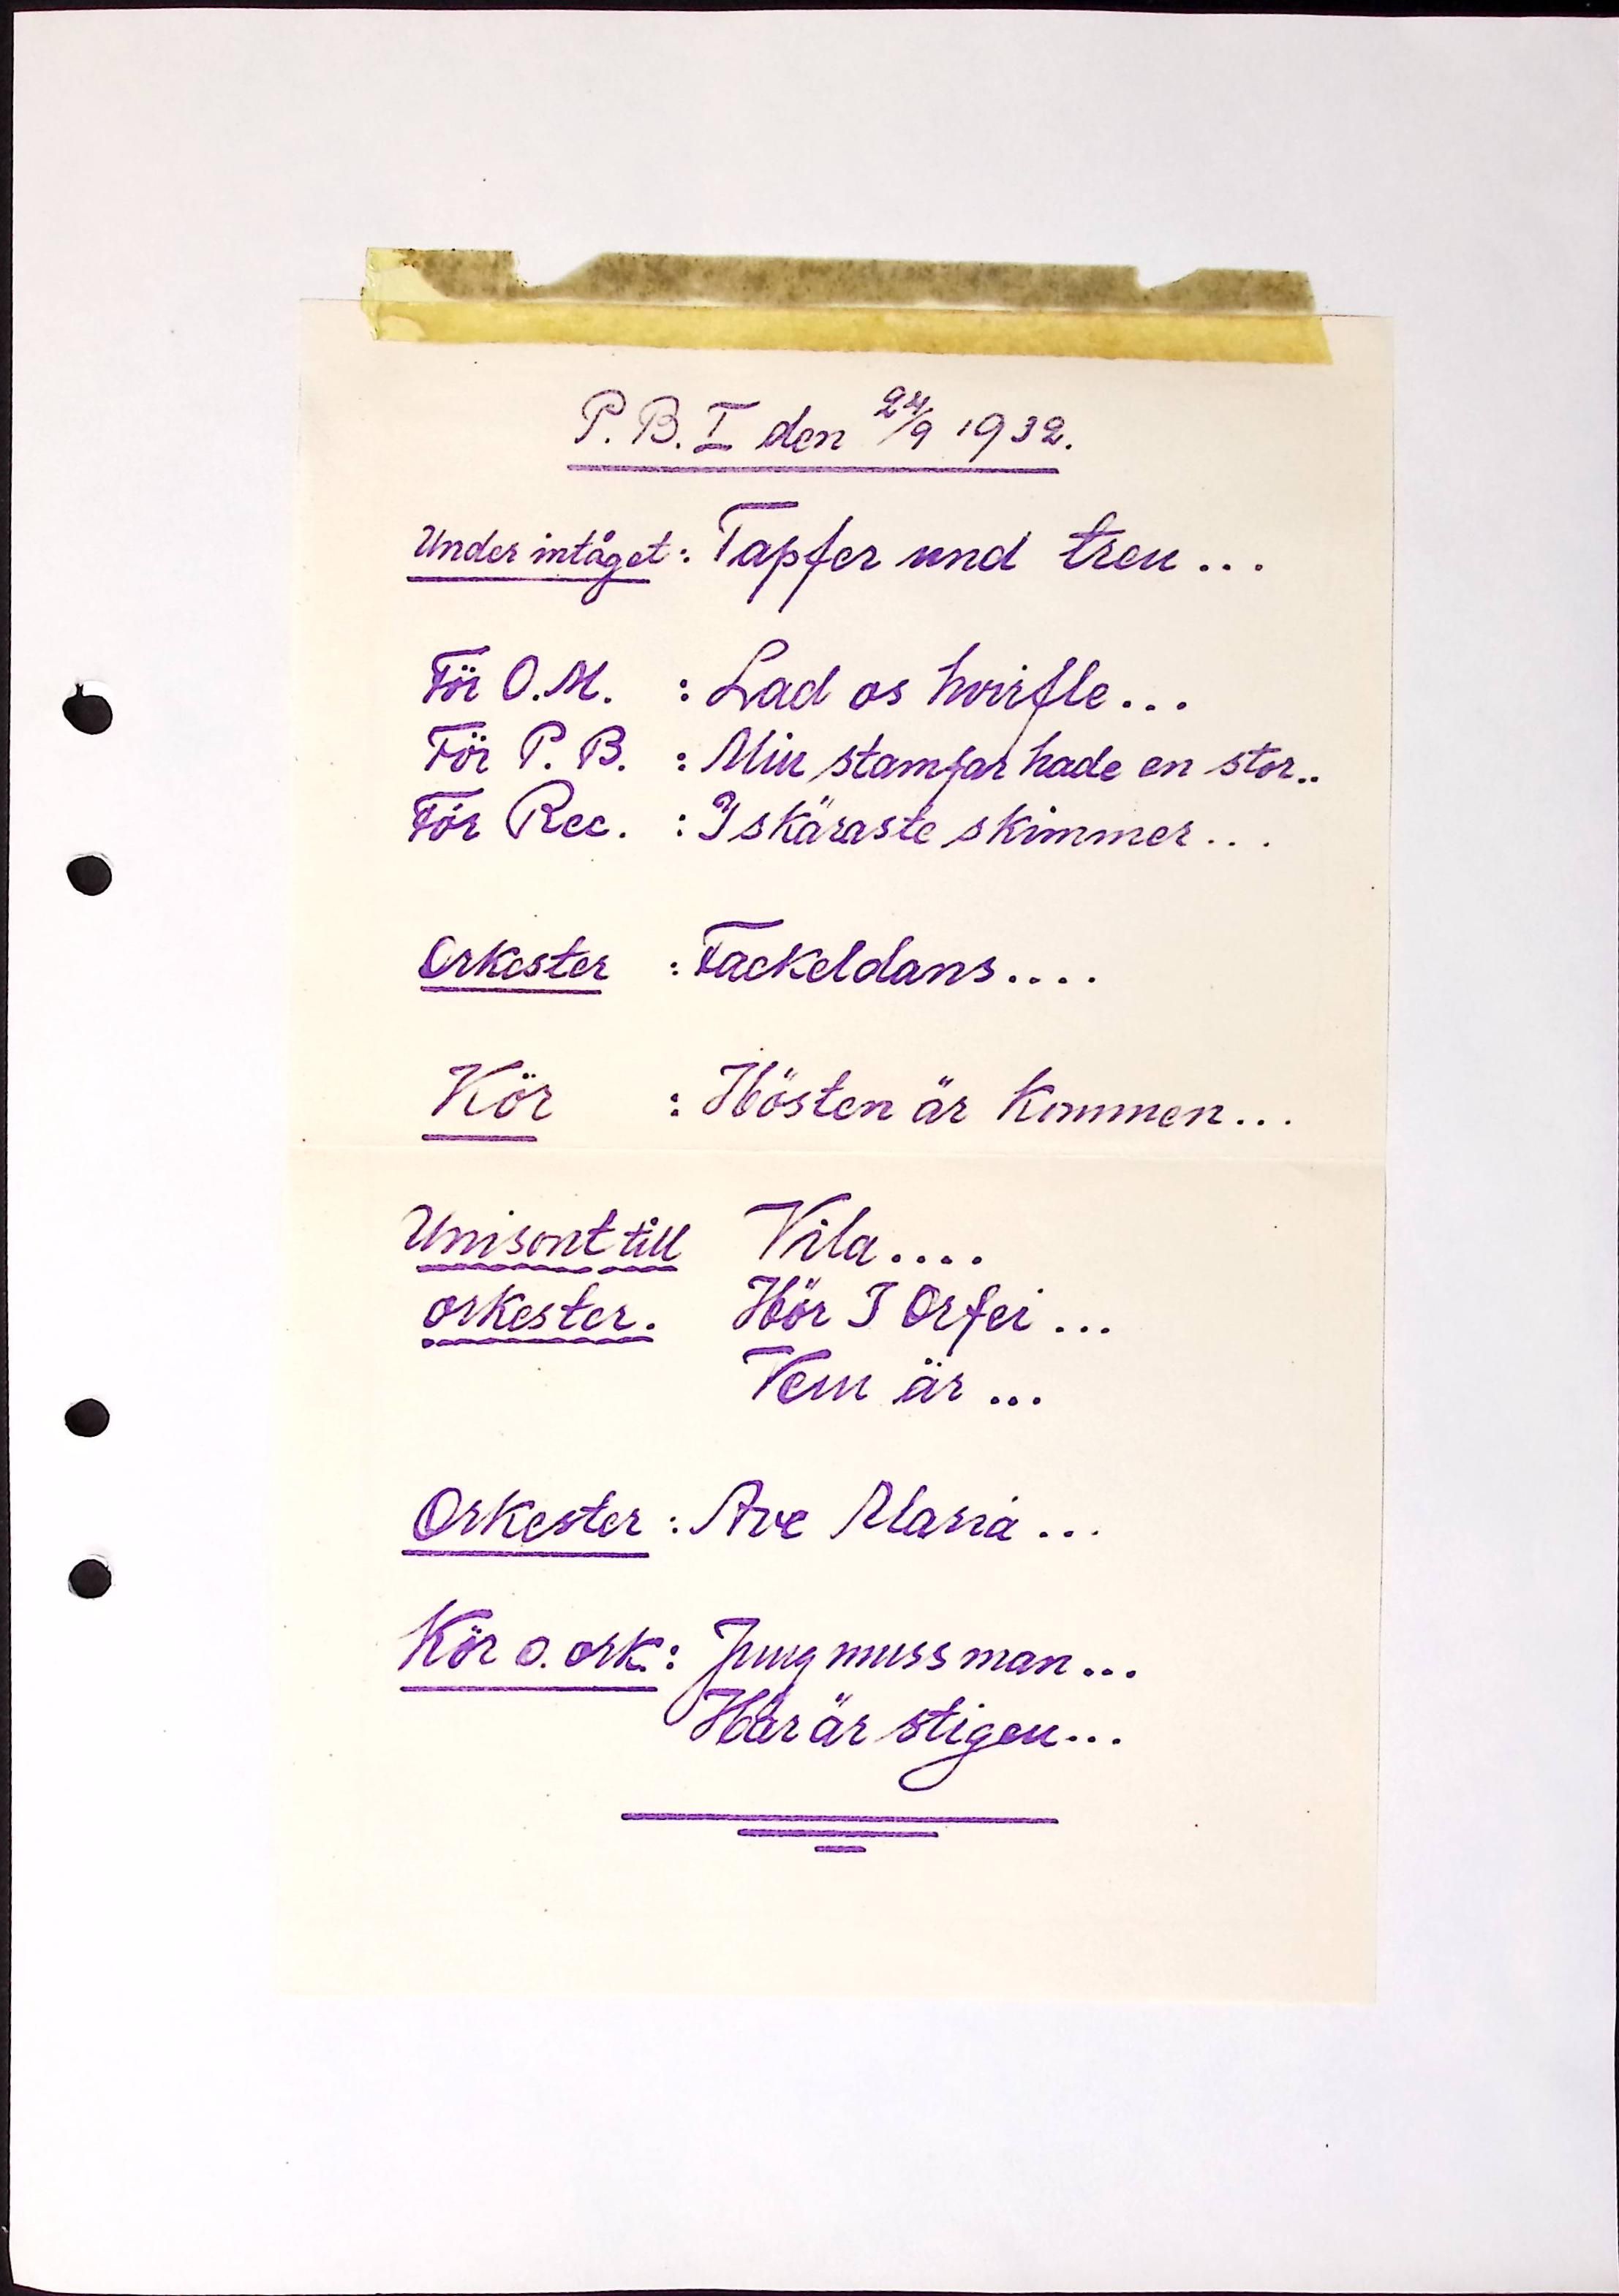 P. B. I den 24/9 1932.
Under intåget: Tapfer und treu ...
För O.M. : Lad os hvirfle ...
För P. B. : Min stamfar hade en stor..
För Rec. : I skäraste skimmer ...
Orkester : Fackeldans ....
Kör : Hösten är kommen ...
Unisont till Vila ....
orkester. Hör I Orfei ...
Vem är ...
Orkester : Ave Maria ...
Kör o. ork.: Jung muss man ...
Här är stigen ...